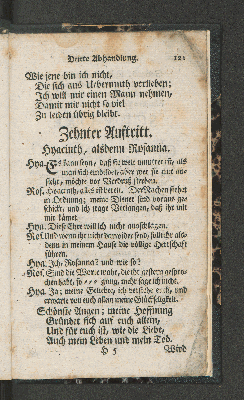 Dritte Abhandlung. 121
Wie jene bin ich nicht,
Die sich aus Uebermuth verlieben;
Ich will mir einen Mann nehmen,
Damit mir nicht so viel
Zu leiden übrig bleibt.
Zehnter Auftritt.
Hyacinth, alsdenn Rosanna.
Hya. Es kann seyn, daß sie
man sich einbildet, aber wer sie nur
sieht, möchte vor Verdruß sterben.
Ros. Hyacinth, alles ist bereit. Der Nachen stehet
in Ordnung; meine Diener sind voraus ge-
schickt, und ich trage Verlangen, daß ihr mit
mir kämet.
Hya. Diese Ehre will ich nicht ausschlagen.
Ros. Und wenn ihr nicht darwider seyd, sollt ihr als-
denn in meinem Hause die völlige Herrschaft
führen.
Hya. Ich, Rosanna? und wie so?
Ros. Sind die Worte wahr, die ihr gestern gespro-
chen habt, so - - - gnug, mehr sage ich nicht.
Hya. Ja; meine Geliebte, ich verstehe euch, und
erwarte von euch allen meine Glückseligkeit.
Schönste Augen; meine Hoffnung
Gründet sich auf euch allein,
Und für euch ist, wie die Liebe,
Auch mein Leben und mein Tod.
H 5 Wird